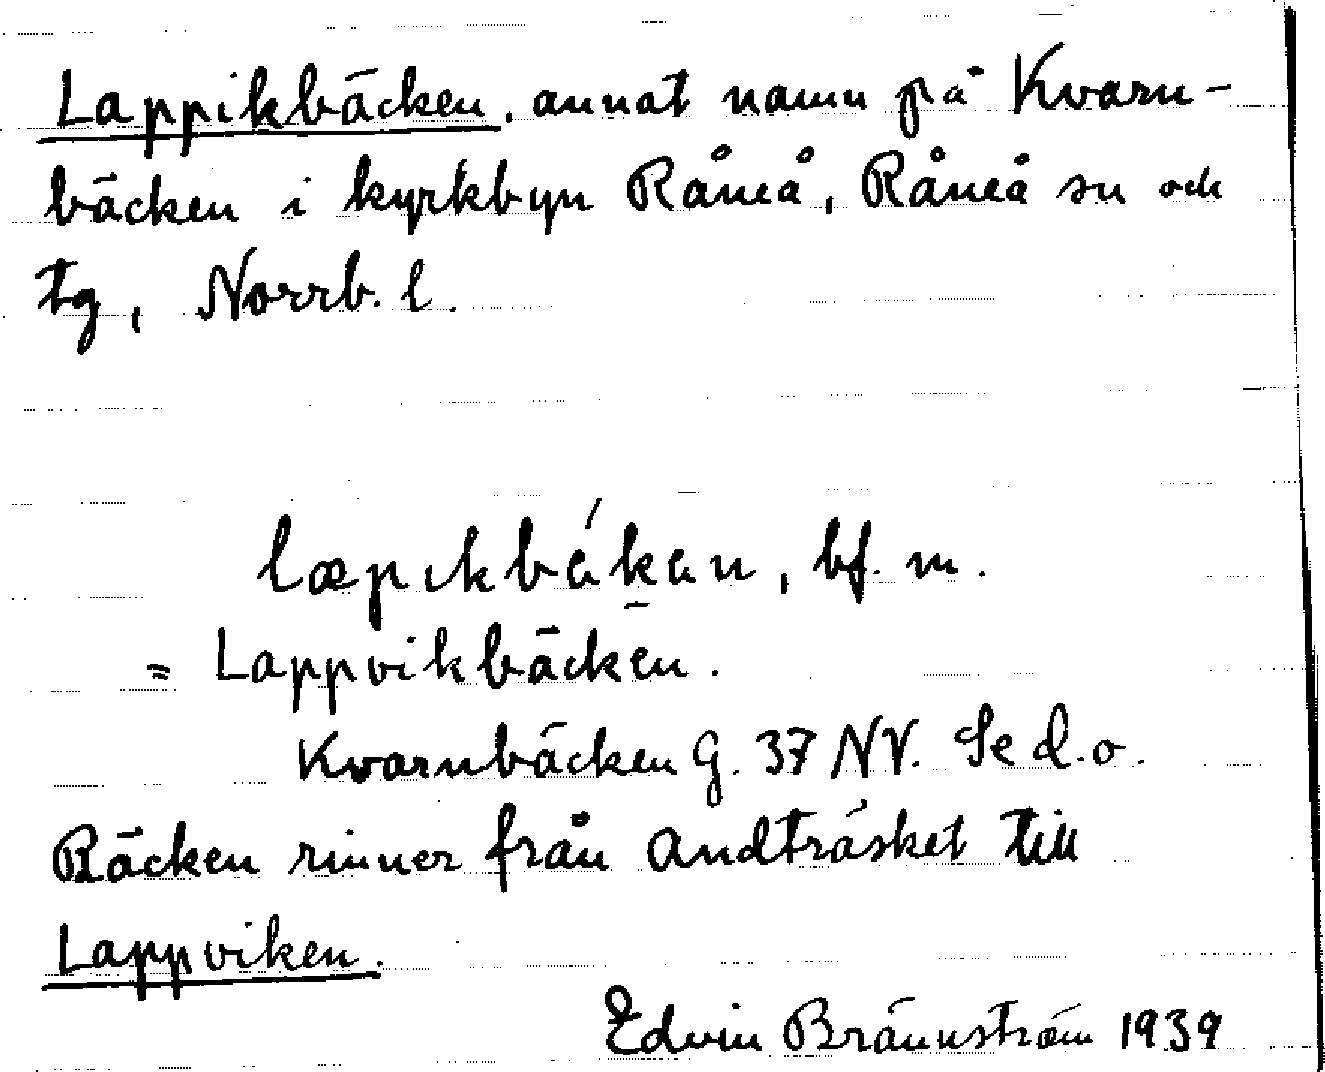 Lappikbäcken, annat namn på Kvarn-
bäcken i kyrkbyn Råneå, Råneå sn och
tg, Norrb. l.
læpıkbákan, bf. m.
= Lappvikbäcken.
Kvarnbäcken G. 37 NV. Se d.o.
Bäcken rinner från Andträsket till
Lappviken.
Edvin Brännström 1939